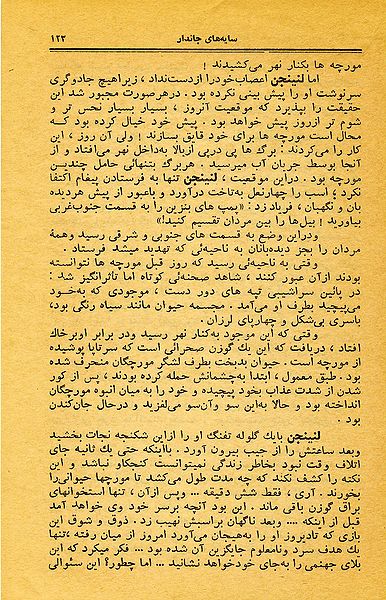 سایه‌های جاندار ۱۲۳
مورچه ها بکنار نهر می‌کشیدند !
اما لنینجن اعصاب‌خودرا ازدست‌نداد ، زیراهیچ جادوگری
سرنوشت او را پیش بینی نکرده بود . درهرصورت مجبور شد این
حقیقت را بپذیرد که موقعیت آنروز ، بسیار بسیار نحس تر و
شوم تر ازروز پیش خواهد بود . پیش خود خیال کرده بود که
محال است مورچه ها برای خود قایق بسازند ! ولی آن روز ، این
کار را می‌کردند : برگ ها پی درپی ازبالا به‌داخل نهر می‌افتاد و از
آنجا بوسط جریان آب میرسید . هربرگ بتنهائی حامل چندین
مورچه بود . دراین موقعیت ، لنینجن تنها به فرستادن پیغام اکتفا
نکرد ، اسب را چهارنعل به‌تاخت درآورد و باعبور از پیش هردیده
بان و نگهبان ، فریاد زد : «پمپ های بنزین را به قسمت جنوب‌غربی
بیاورید ! بیل‌ها را بین مردان تقسیم کنید!»
ودراین وضع به قسمت های جنوبی و شرقی رسید وهمهٔ
مردان را بجز دیده‌بانان به ناحیه‌ئی که تهدید میشد فرستاد .
وقتی به ناحیه‌ئی رسید که روز قبل مورچه ها نتوانسته
بودند ازآن عبور کنند ، شاهد صحنه‌ئی کوتاه اما تاثرانگیز شد :
در پائین سراشیبی تپه های دور دست ، موجودی که به‌خود
می‌پیچید بطرف او می‌آمد . مجسمه حیوان مانند سیاه رنگی بود،
باسری بی‌شکل و چهارپای لرزان .
وقتی که این موجود به‌کنار نهر رسید ودر برابر اوبرخاک
افتاد ، دریافت که این یك گوزن صحرائی است که سرتاپا پوشیده
از مورچه است . حیوان بدبخت بطرف لشگر مورچگان منحرف شده
بود . طبق معمول ، ابتدا به‌چشمانش حمله کرده بودند ، پس از کور
شدن از شدت عذاب بخود پیچیده و خود را به میان انبوه مورچگان
انداخته بود و حالا به‌این سو وآن‌سو می‌لغزید و درحال جان‌کندن
بود .
لنینجن بایك گلوله تفنگ او را ازاین شکنجه نجات بخشید
وبعد ساعتش را از جیب بیرون آورد . بااینکه حتی یك ثانیه جای
اتلاف وقت نبود بخاطر زندگی نمیتوانست کنجکاو نباشد و این
نکته را کشف نکند که چه مدت طول می‌کشد تا مورچها حیوانی‌را
بخورند . آری ، فقط شش دقیقه ... پس ازآن ، تنها استخوانهای
براق گوزن باقی ماند . این بود آنچه برسر خود وی خواهد آمد
قبل از اینکه .... وبعد ناگهان براسبش نهیب زد . ذوق و شوق این
بازی که تادیروز او را به‌هیجان می‌آورد امروز از میان رفته ،تنها
یك هدف سرد ونامعلوم جایگزین آن شده بود ... فکر میکرد که این
بلای جهنمی را به‌جای خودخواهد نشانید ... اما چطور؟ این سئوالی